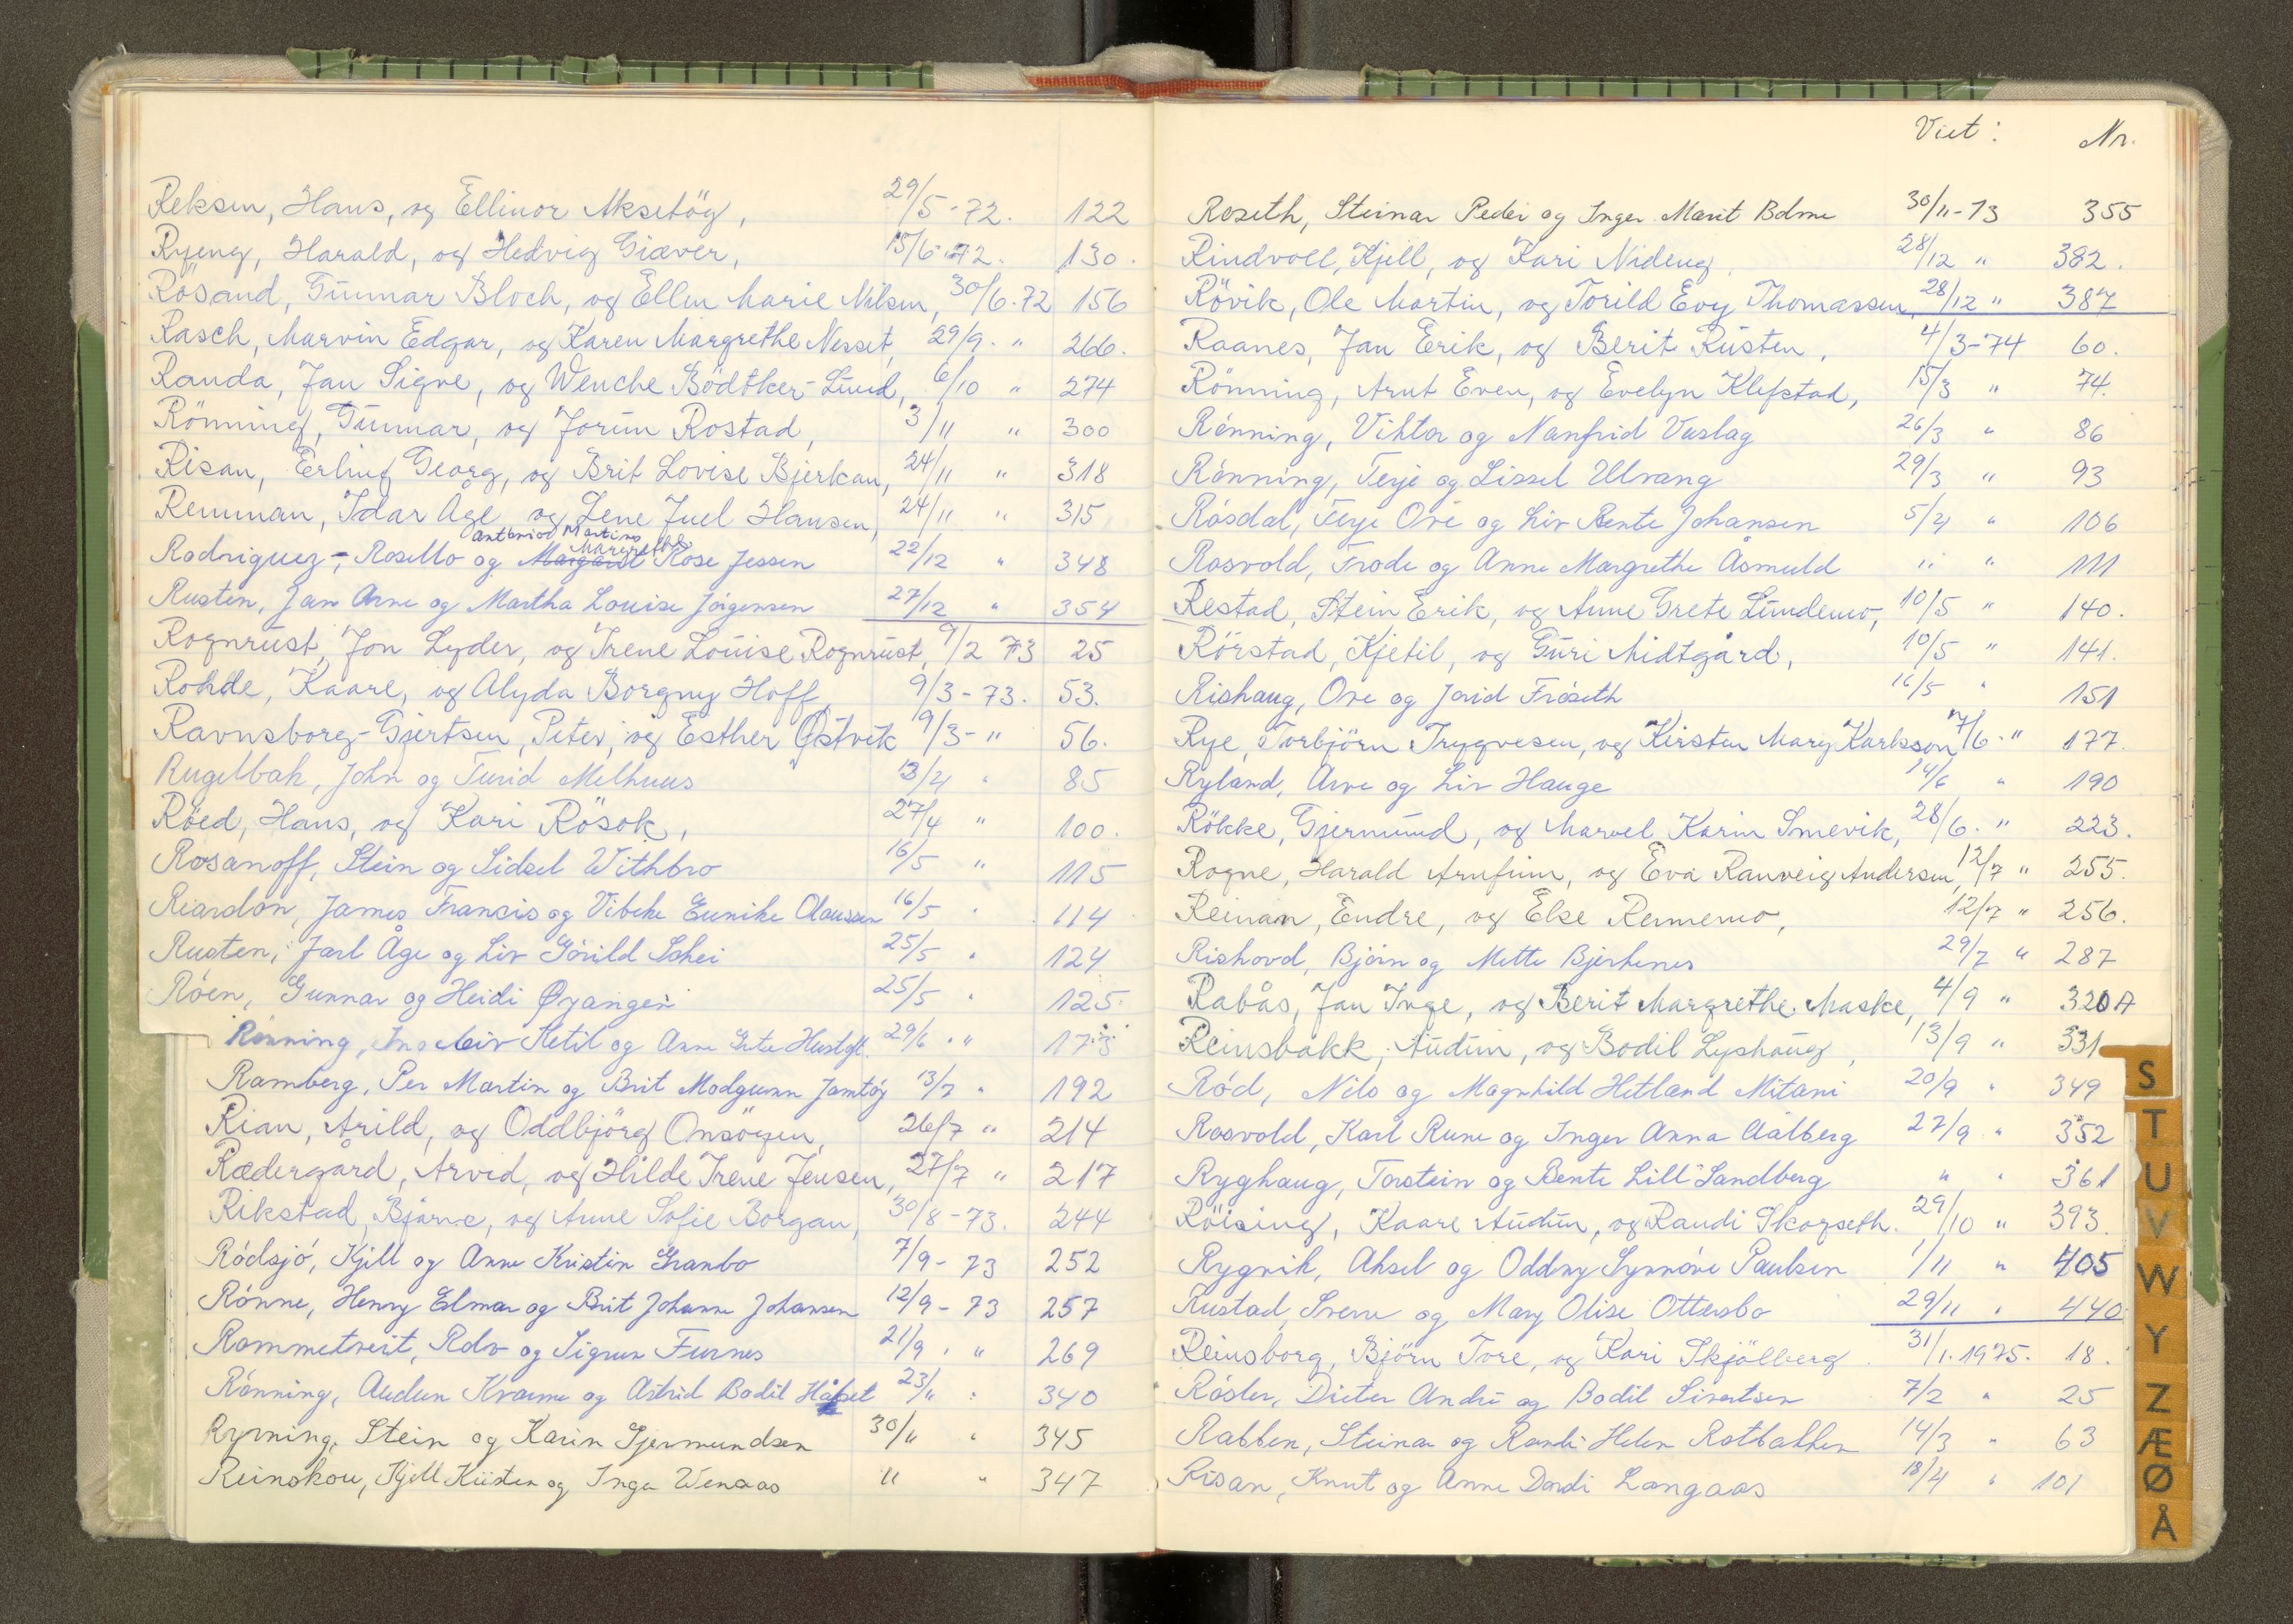 Reksen, Hans, og Ellinor Aksetög, 29/5-72. 122
Ryeng, Harald, og Hedvig Giæver, 15/6-72. 130.
Rösand, Gunnar Bloch, og Ellen Marie Nilsen, 30/6.72 156
Rasch, Marvin Edgar, og Karen Margrethe Nesset, 29/9. " 266.
Randa, Jan Signe, og Wenche Bödtker-Lund, 6/10 " 274
Rönning, Gunnar, og Jorun Rostad, 3/11 " 300
Risan, Erling Georg, og Brit Lovise Bjerkan, 24/11 " 318
Remman, Idar Åge og Lene Juel Hansen, 24/11 " 315
Antonio Martino Margrethe
Rodriguez-, Rosello og Margaret Rose Jessen 22/12 " 348
Rusten, Jan Arne og Martha Louise Jörgensen 27/12 " 354
Rognrust, Jon Lyder, og Irene Louise Rognrust, 9/2 73 25
Rohde, Kaare, og Alyda Borgny Hoff 9/3-73. 53.
Ravnsborg-Gjertsen, Peter, og Esther Østvik 9/3-" 56.
Rugelbak, John og Turid Melhuus 13/4 " 85
Röed, Hans, og Kari Rösok, 27/4 " 100.
Rosanoff, Stein og Sidsel Withbro 16/5 " 115
Riardon, James Francis og Vibeke Eunike Olaussen 16/5 " 114
Rusten, Jarl Åge og Liv Görild Schei 25/5 " 124
Röen, Gunnar og Heidi Øyangen 25/5 " 125
Rönning, Ketil og Anne Grete 29/6 " 173
Ramberg, Per Martin og Brit Modgunn Jamtöy 13/7 " 192
Rian, Arild, og Oddbjörg Onsöyen, 26/7 " 214
Rædergård, Arvid, og Hilde Irene Jensen, 27/7 " 217
Rikstad, Bjarne, og Anne Sofie Borgan, 30/8-73. 244
Rödsjö, Kjell og Anne Kristin Granbo 7/9-73 252
Rönne, Henry Elmar og Brit Johanne Johansen 12/9-73 257
Rommetveit, Rolv og Sigrun Furnes 21/9 " 269
Rönning, Audun Kvamme og Astrid Bodil 23/11 " 340
Ryrning, Stein og Karin Gjermundsen 30/11 " 345
Reinskou, Kjell Kristen og Inga Wenaas " " 347
Viet: Nr.
Roseth, Steinar Peder og Inger Marit Bolme 30/11-73 355
Rindvoll, Kjell, og Kari Nideng, 28/12 " 382.
Rövik, Ole Martin, og Torild Evy Thomassen, 28/12 " 387
Raanes, Jan Erik, og Berit Rusten, 4/3-74 60.
Rönning, Arnt Even, og Evelyn Klefstad, 15/3 " 74.
Rönning, Viktor og Nanfrid Vuslag 26/3 " 86
Rönning, Terje og Lissel Ulvang 29/3 " 93
Rösdal, Terje Ove og Liv Bente Johansen 5/4 " 106
Rosvold, Frode og Anne Margrethe Åsmuld " " 111
Restad, Stein Erik, og Anne Grete Lundemo, 10/5 " 140.
Rörstad, Kjetil, og Guri Midtgård, 10/5 " 141.
Rishaug, Ove og Jorid Fröseth 16/5 " 151
Rye, Torbjörn Trygvesen, og Kirsten Mary Karlsson 7/6 " 177.
Ryland, Arve og Liv Hauge 14/6 " 190
Rökke, Gjermund, og Marvel Karin Smevik, 28/6. " 223.
Rogne, Harald Arnfinn, og Eva Ranveig Andersen, 12/7 " 255.
Reinan, Endre, og Else Rennemo, 12/7 " 256.
Rishovd, Björn og Mette Bjerkenes 29/7 " 287
Rabås, Jan Inge, og Berit Margrethe Maske, 4/9 " 320A
Reinsbakk, Audun, og Bodil Lyshaug, 13/9 " 331
Röd, Nils og Magnhild Hetland Mitani 20/9 " 349
Rosvold, Karl Rune og Inger Anna Aalberg 27/9 " 352
Ryghaug, Torstein og Bente Lill Sandberg " " 361
Röising, Kaare Audun, og Randi Skorseth. 29/10 " 393
Rygvik, Aksel og Oddny Synnöve Paulsen 1/11 " 405
Rustad, Sverre og Mary Olise Ottersbo 29/11 " 440
Reinsborg, Björn Tore, og Kari Skjölberg. 31/1.1975. 18.
Rösler, Dieter André og Bodil Sivertsen 7/2 " 25
Rabben, Steinar og Randi Helen Rotbakken 14/3 " 63
Risan, Knut og Anne Dordi Langaas 18/4 " 101
S
T
U
V
W
Y
Z
Æ
Ø
Å